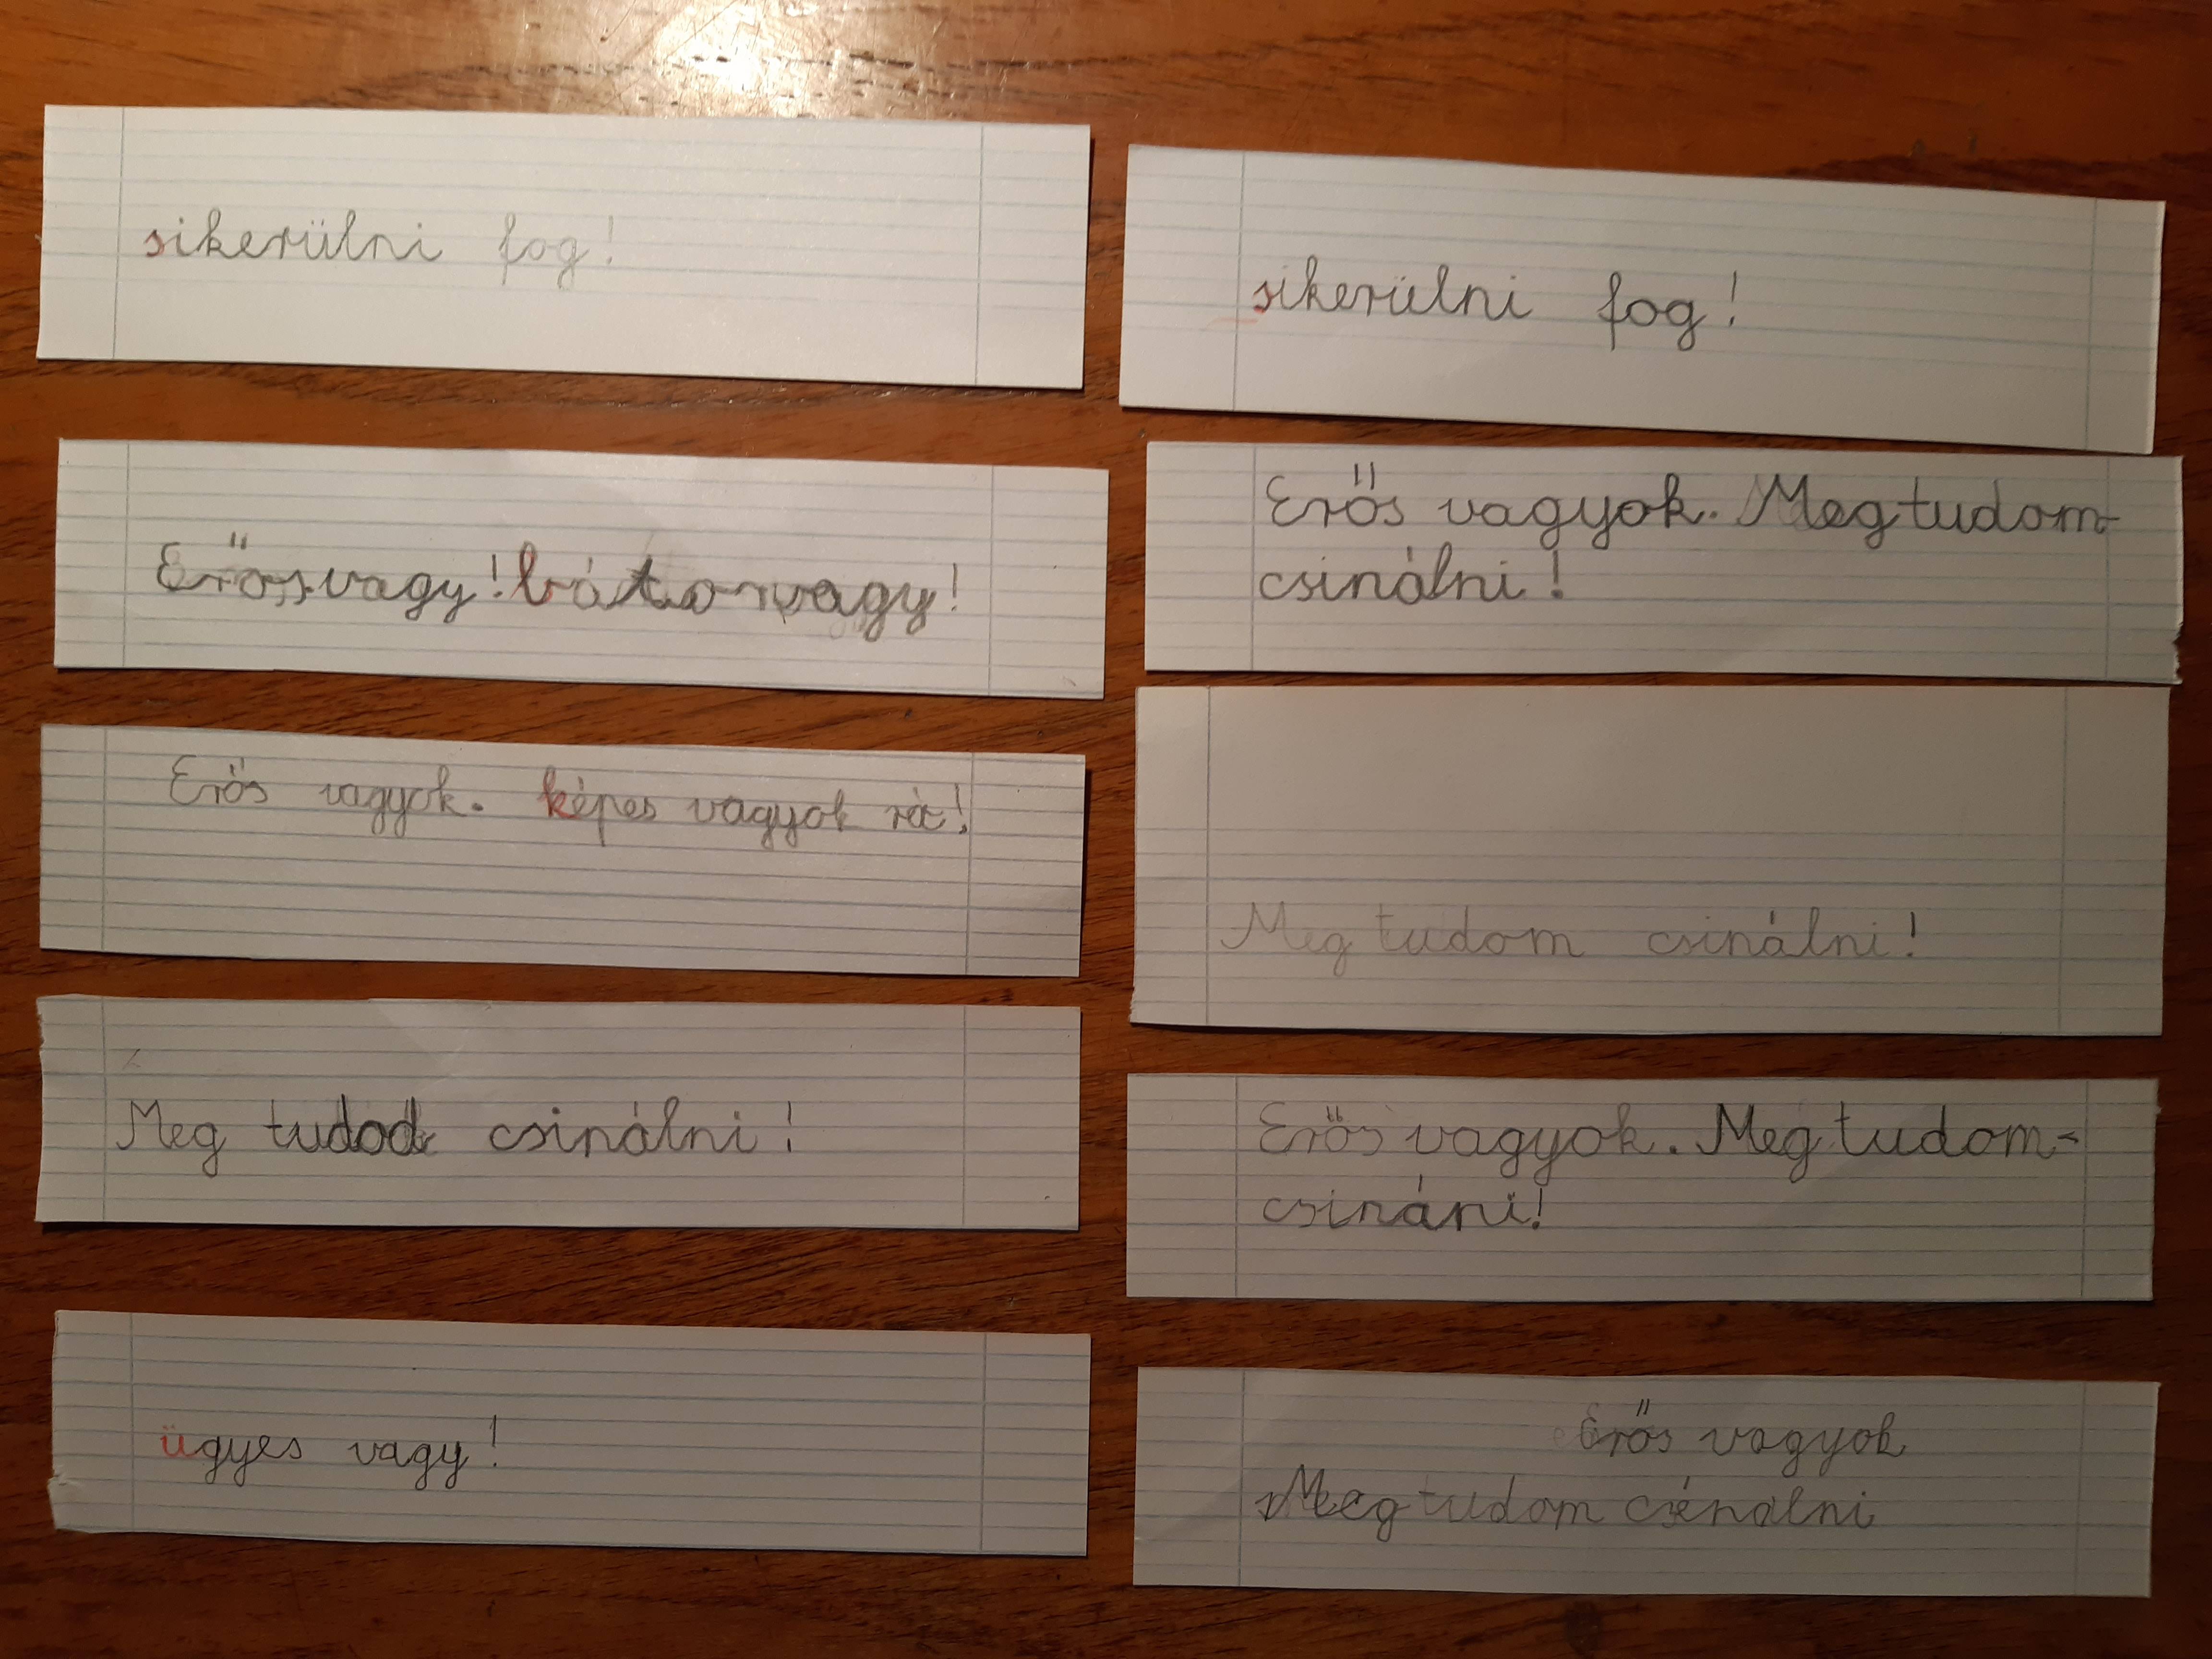 sikerülni fog!
Erős vagy! bátor vagy!
Erős vagyok. képes vagyok rá!
Meg tudod csinálni!
ügyes vagy!
sikerülni fog!
Erős vagyok. Meg tudom-
csinálni!
Meg tudom csinálni!
Erős vagyok. Meg tudom-
csináni!
Erős vagyok
Meg tudom csénálni